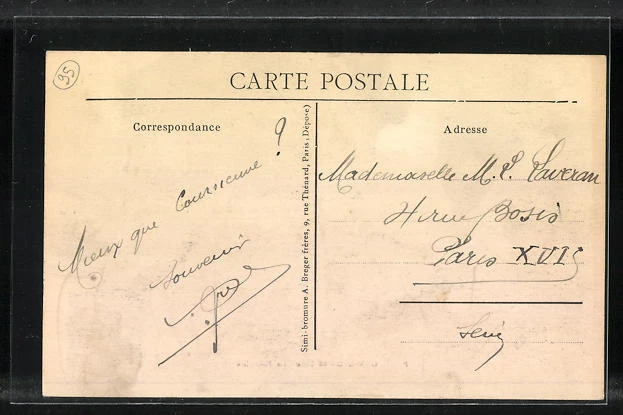 95
CARTE POSTALE
Correspondance
Adresse
Mieux que Courseume ?
Souvenir
Simi-bromure A. Breger frères, 9, rue Thénard, Paris (Déposé)
Mademoiselle M. L. Laveran
4 rue Bosio
Paris XVI
Seine